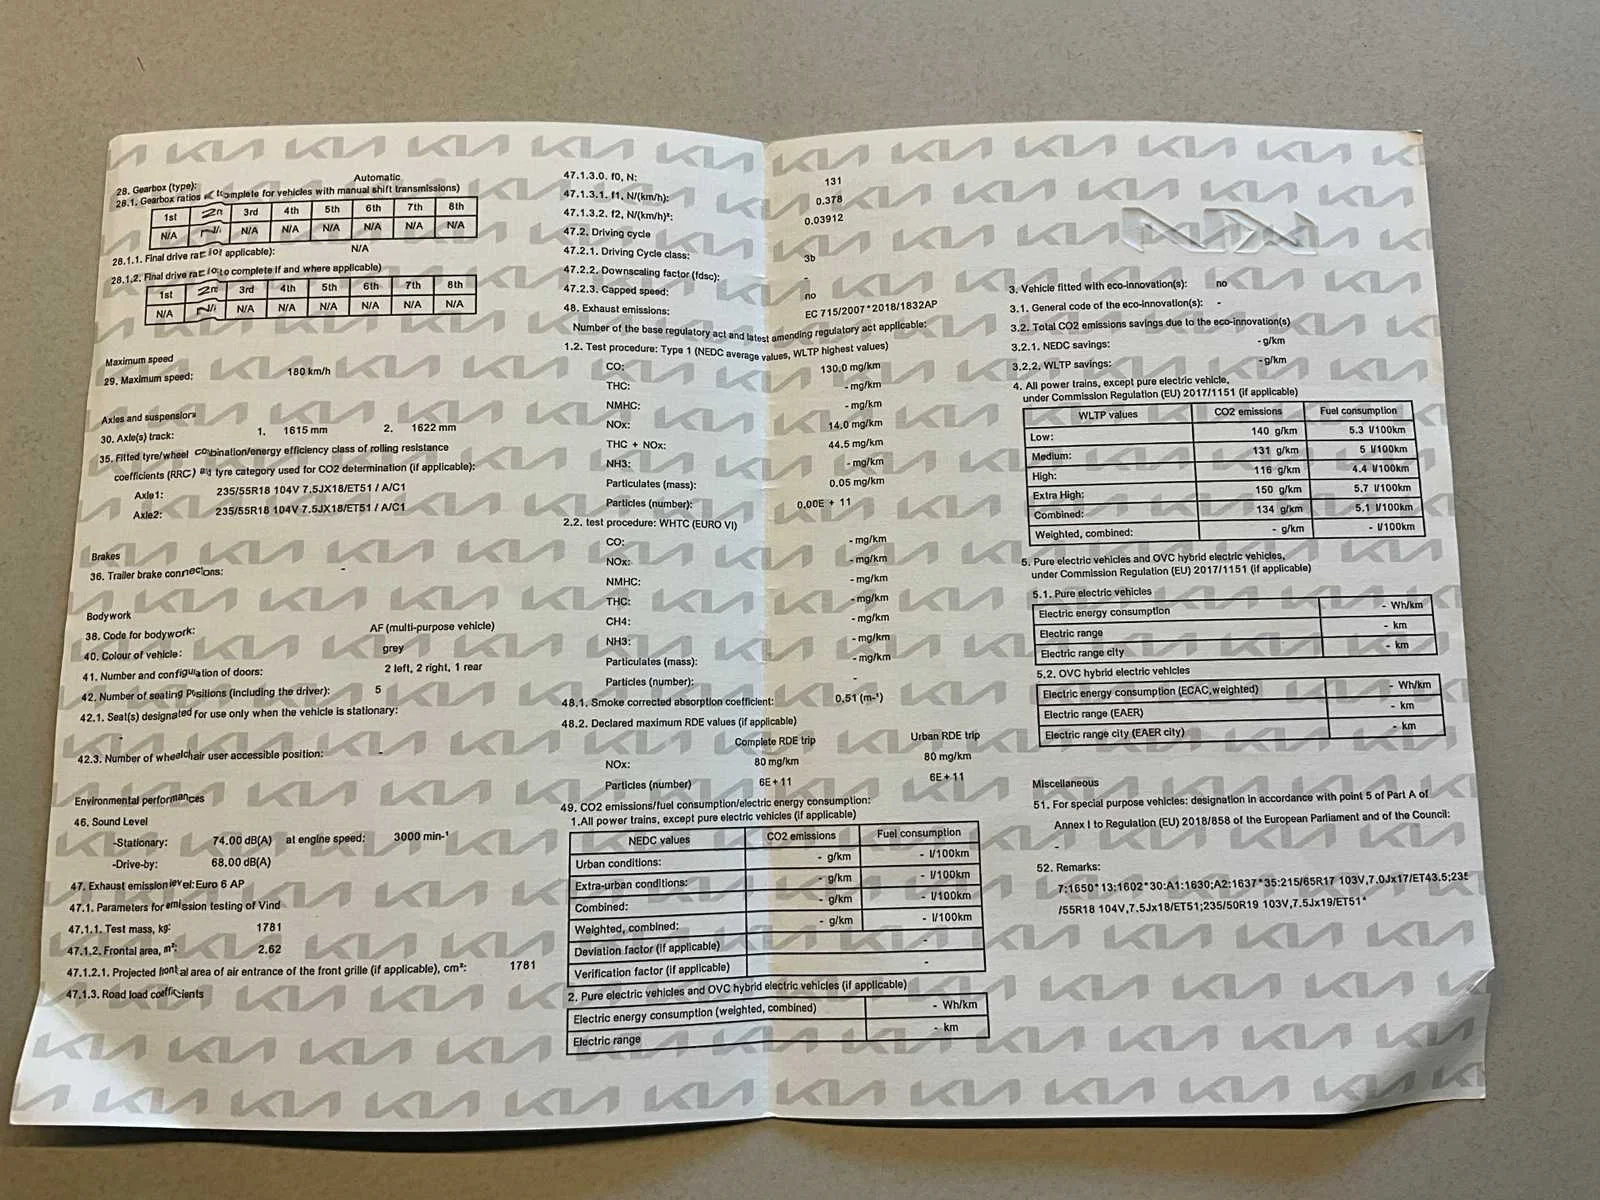 28. Gearbox (type): Automatic
28.1. Gearbox ratios complete for vehicles with manual shift transmissions)
1st 3rd 4th 5th 6th 7th 8th
N/A N/A N/A N/A N/A N/A N/A
28.1.1. Final drive applicable): N/A
28.1.2. Final drive to complete if and where applicable)
1st 3rd 4th 5th 6th 7th 8th
N/A N/A N/A N/A N/A N/A N/A
Maximum speed
29. Maximum speed: 180 km/h
Axles and suspension
30. Axle(s) track: 1. 1615 mm 2. 1622 mm
35. Fitted tyre/wheel combination/energy efficiency class of rolling resistance
coefficients (RRC) and tyre category used for CO2 determination (if applicable):
Axle1: 235/55R18 104V 7.5JX18/ET51 / A/C1
Axle2: 235/55R18 104V 7.5JX18/ET51 / A/C1
Brakes
36. Trailer brake connections: -
Bodywork
38. Code for bodywork: AF (multi-purpose vehicle)
40. Colour of vehicle: grey
41. Number and configuration of doors: 2 left, 2 right, 1 rear
42. Number of seating Positions (including the driver): 5
42.1. Seat(s) designated for use only when the vehicle is stationary:
-
42.3. Number of wheelchair user accessible position: -
Environmental performances
46. Sound Level
-Stationary: 74.00 dB(A) at engine speed: 3000 min-¹
-Drive-by: 68.00 dB(A)
47. Exhaust emission level: Euro 6 AP
47.1. Parameters for emission testing of Vind
47.1.1. Test mass, kg: 1781
47.1.2. Frontal area, m²: 2.62
47.1.2.1. Projected frontal area of air entrance of the front grille (if applicable), cm²: 1781
47.1.3. Road load coefficients
47.1.3.0. f0, N: 131
47.1.3.1. f1, N/(km/h): 0.378
47.1.3.2. f2, N/(km/h)²: 0.03912
47.2. Driving cycle
47.2.1. Driving Cycle class: 3b
47.2.2. Downscaling factor (fdsc): -
47.2.3. Capped speed: no
48. Exhaust emissions: EC 715/2007*2018/1832AP
Number of the base regulatory act and latest amending regulatory act applicable:
1.2. Test procedure: Type 1 (NEDC average values, WLTP highest values)
CO: 130.0 mg/km
THC: - mg/km
NMHC: - mg/km
NOx: 14.0 mg/km
THC + NOx: 44.5 mg/km
NH3: - mg/km
Particulates (mass): 0.05 mg/km
Particles (number): 0.00E + 11
2.2. test procedure: WHTC (EURO VI)
CO: - mg/km
NOx: - mg/km
NMHC: - mg/km
THC: - mg/km
CH4: - mg/km
NH3: - mg/km
Particulates (mass): - mg/km
Particles (number): -
48.1. Smoke corrected absorption coefficient: 0.51 (m-¹)
48.2. Declared maximum RDE values (if applicable)
Complete RDE trip Urban RDE trip
NOx: 80 mg/km 80 mg/km
Particles (number) 6E+11 6E+11
49. CO2 emissions/fuel consumption/electric energy consumption:
1.All power trains, except pure electric vehicles (if applicable)
NEDC values CO2 emissions Fuel consumption
Urban conditions: - g/km - l/100km
Extra-urban conditions: - g/km - l/100km
Combined: - g/km - l/100km
Weighted, combined: - g/km - l/100km
Deviation factor (if applicable) -
Verification factor (if applicable) -
2. Pure electric vehicles and OVC hybrid electric vehicles (if applicable)
Electric energy consumption (weighted, combined) - Wh/km
Electric range - km
3. Vehicle fitted with eco-innovation(s): no
3.1. General code of the eco-innovation(s): -
3.2. Total CO2 emissions savings due to the eco-innovation(s)
3.2.1. NEDC savings: - g/km
3.2.2. WLTP savings: - g/km
4. All power trains, except pure electric vehicle,
under Commission Regulation (EU) 2017/1151 (if applicable)
WLTP values CO2 emissions Fuel consumption
Low: 140 g/km 5.3 l/100km
Medium: 131 g/km 5 l/100km
High: 116 g/km 4.4 l/100km
Extra High: 150 g/km 5.7 l/100km
Combined: 134 g/km 5.1 l/100km
Weighted, combined: - g/km - l/100km
5. Pure electric vehicles and OVC hybrid electric vehicles,
under Commission Regulation (EU) 2017/1151 (if applicable)
5.1. Pure electric vehicles
Electric energy consumption - Wh/km
Electric range - km
Electric range city - km
5.2. OVC hybrid electric vehicles
Electric energy consumption (ECAC,weighted) - Wh/km
Electric range (EAER) - km
Electric range city (EAER city) - km
Miscellaneous
51. For special purpose vehicles: designation in accordance with point 5 of Part A of
Annex I to Regulation (EU) 2018/858 of the European Parliament and of the Council:
-
52. Remarks:
7:1650*13:1602*30:A1:1630;A2:1637*35:215/65R17 103V,7.0Jx17/ET43.5;235
/55R18 104V,7.5Jx18/ET51;235/50R19 103V,7.5Jx19/ET51*